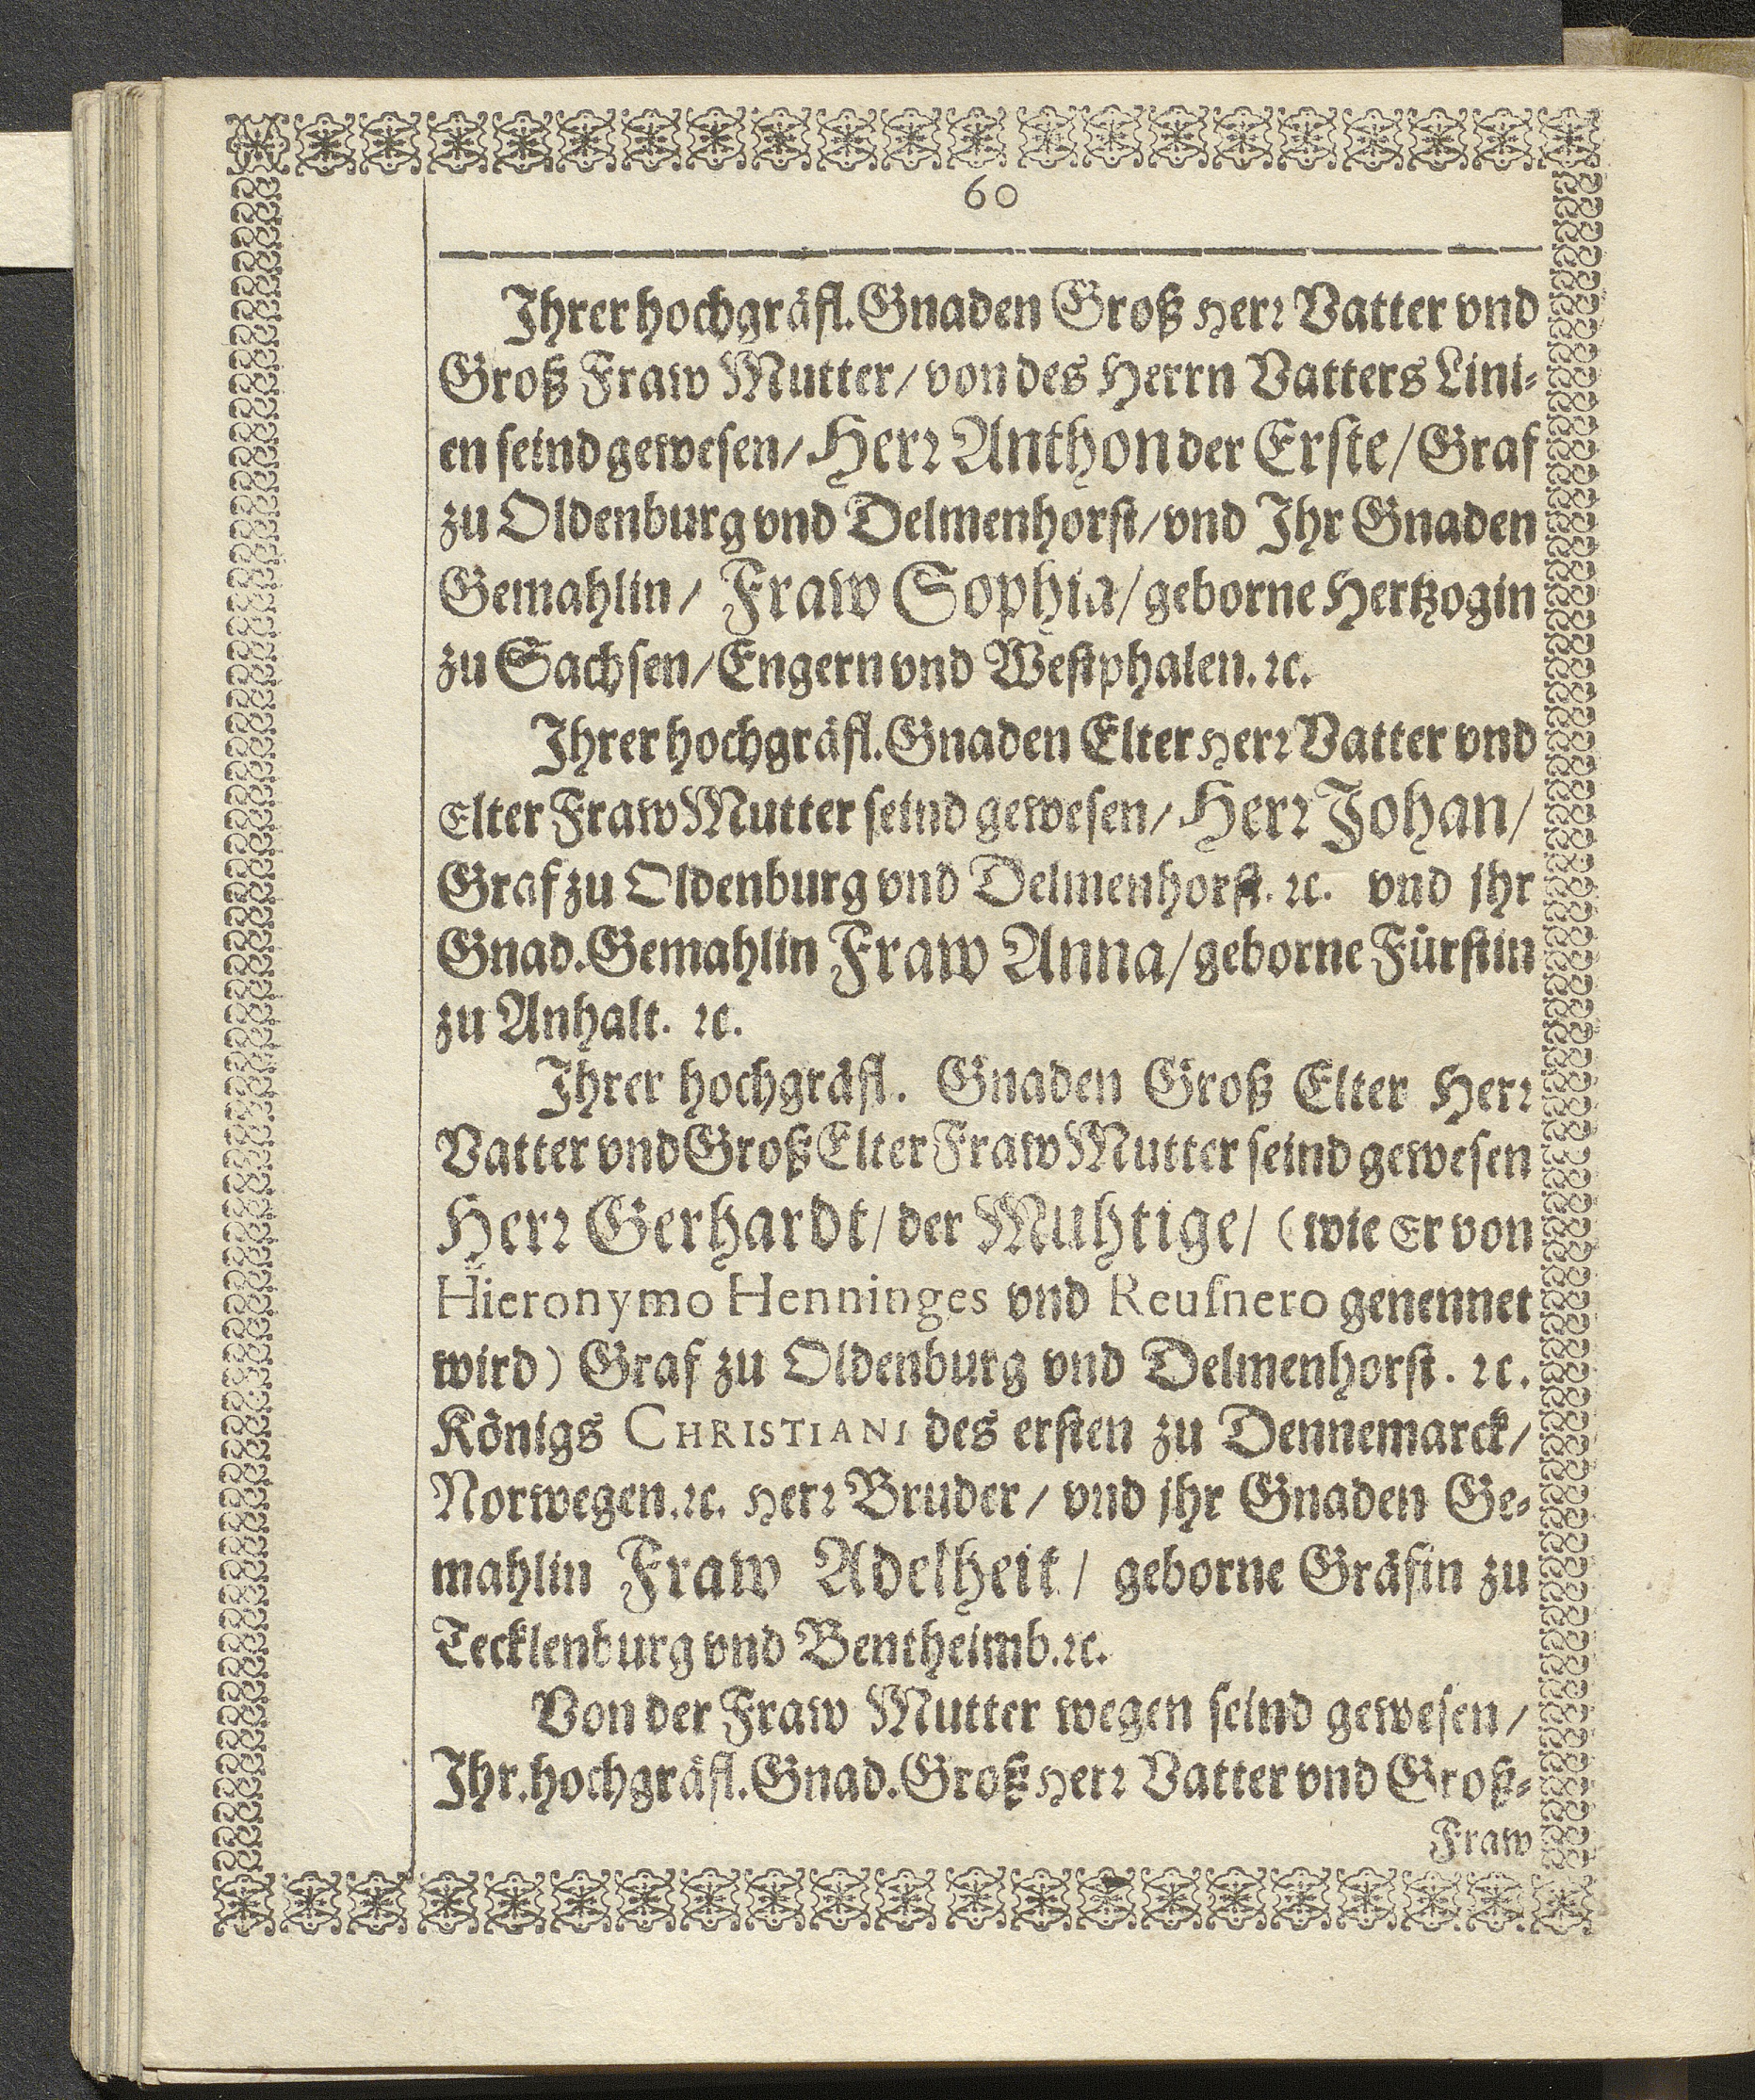 60
Ihrer hochgräfl. Gnaden Groß Herr Vatter vnd
Groß Fraw Mutter / von des Herrn Vatters Lini-
en seind gewesen / Herr Anthon der Erste / Graf
zu Oldenburg vnd Delmenhorst / vnd Ihr Gnaden
Gemahlin / Fraw Sophia / geborne Hertzogin
zu Sachsen / Engern vnd Westphalen. ꝛc.
Ihrer hochgräfl. Gnaden Elter Herr Vatter vnd
Elter Fraw Mutter seind gewesen / Herr Johan /
Graf zu Oldenburg vnd Delmenhorst. ꝛc. vnd jhr
Gnad. Gemahlin Fraw Anna / geborne Fürstin
zu Anhalt. ꝛc.
Ihrer hochgräfl. Gnaden Groß Elter Herr
Vatter vnd Groß Elter Fraw Mutter seind gewesen
Herr Gerhardt / der Muhtige / (wie Er von
Hieronymo Henninges vnd Reuſnero genennet
wird) Graf zu Oldenburg vnd Delmenhorst. ꝛc.
Königs CHRISTIANI des ersten zu Dennemarck /
Norwegen. ꝛc. Herr Bruder / vnd jhr Gnaden Ge-
mahlin Fraw Adelheit / geborne Gräfin zu
Tecklenburg vnd Bentheimb. ꝛc.
Von der Fraw Mutter wegen seind gewesen /
Ihr. hochgräfl. Gnad. Groß Herr Vatter vnd Groß-
Fraw